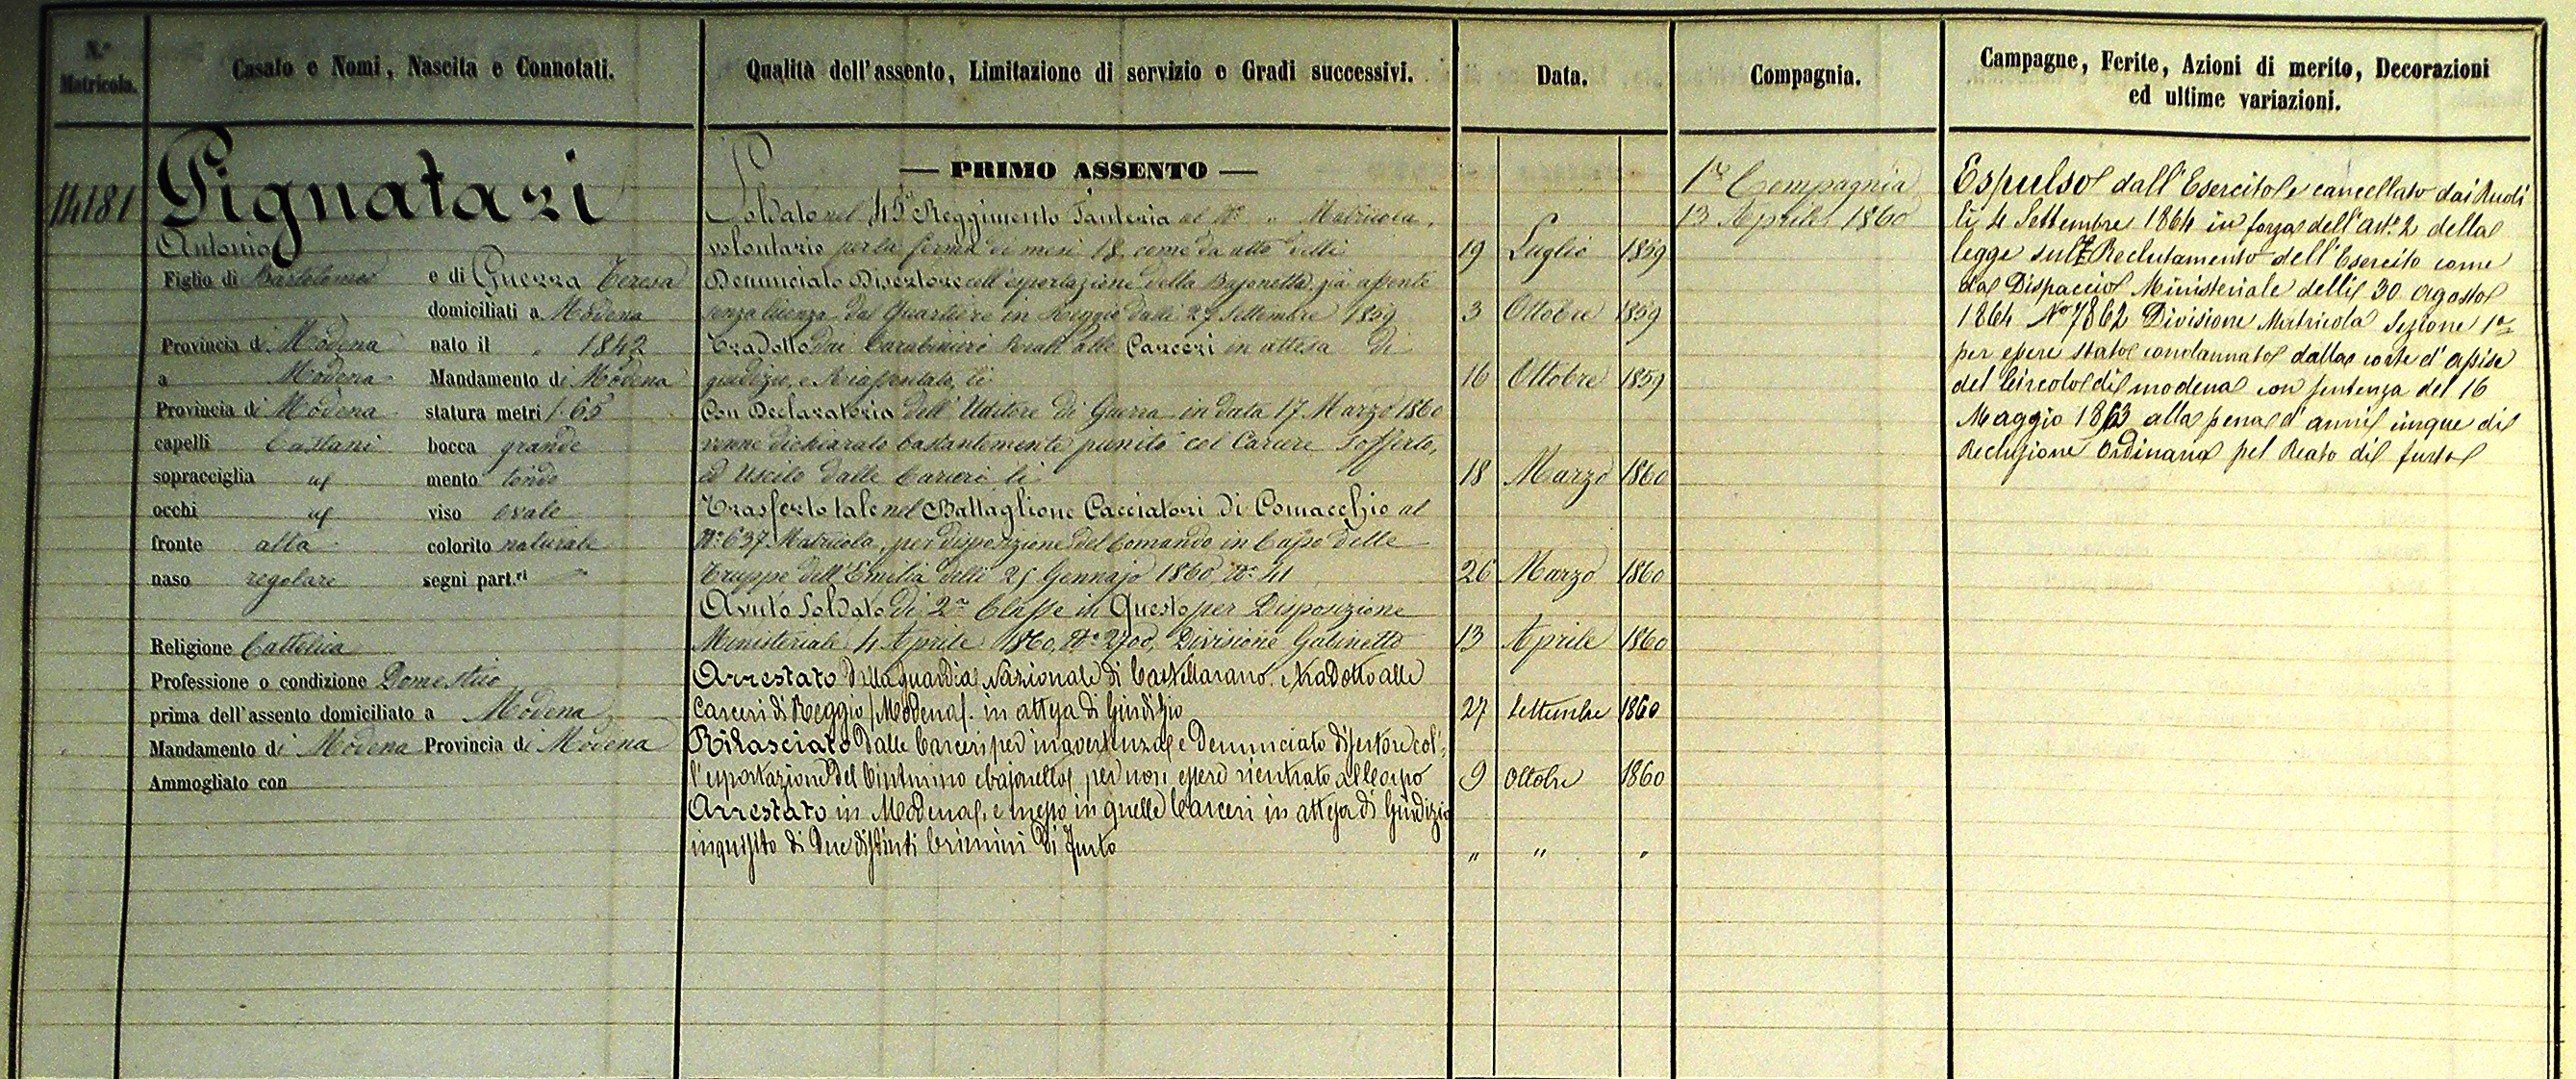 N.° Matricola.
Casato e Nomi, Nascita e Connotati.
Qualità dell'assento, Limitazione di servizio e Gradi successivi.
Data.
Compagnia.
Campagne, Ferite, Azioni di merito, Decorazioni
ed ultime variazioni.
14181
Pignatari
Antonio
Figlio di Bartolomeo e di Guerra Teresa
domiciliati a Modena
Provincia di Modena nato il " 1842
a Modena Mandamento di Modena
Provincia di Modena statura metri 1.65
capelli Castani bocca grande
sopracciglia id mento tondo
occhi id viso ovale
fronte alta colorito naturale
naso regolare segni part.ri
Religione Cattolica
Professione o condizione Domestico
prima dell'assento domiciliato a Modena
Mandamento di Modena Provincia di Modena
Ammogliato con
— PRIMO ASSENTO —
Soldato nel 45° Reggimento Fanteria al N° " Matricola,
volontario per la ferma di mesi 18 come da atto delli 19 Luglio 1859
Denunciato Disertore coll'esportazione della Bajonetta già assente
senza licenza dal Quartiere in Reggio dalli 27 Settembre 1859 3 Ottobre 1859
Tradotto dai Carabinieri Reali alle Carceri in attesa di
giudizio, e Riassentato, li 16 Ottobre 1859
Con Declaratoria dell'Uditore di Guerra in data 17 Marzo 1860
venne dichiarato bastantemente punito col Carcere Sofferto,
ed Uscito dalle Carceri li 18 Marzo 1860
Trasferto tale nel Battaglione Cacciatori di Comacchio al
N° 637 Matricola, per disposizione del Comando in Capo delle
Truppe dell'Emilia delli 25 Gennajo 1860, N° 41 26 Marzo 1860
Avuto Soldato di 2a Classe in Questo per Disposizione
Ministeriale 4 Aprile 1860, N° 2700, Divisione Gabinetto 13 Aprile 1860
Arrestato dalla guardia Nazionale di Castellarano. tradotto alle
Carceri di Reggio (Modena). in attesa di Giudizio 27 Settembre 1860
Rilasciato dalle Carceri per inavertenza e Denunciato disertore col-
l'esportazione del Cinturino e bajonetta per non essere rientrato al Corpo 9 Ottobre 1860
Arrestato in Modena, e messo in quelle Carceri in attesa di Giudizio
inquisito di due distinti Crimini di furto " " "
1a Compagnia
13 Aprile 1860
Espulso dall'Esercito e cancellato dai Ruoli
li 4 Settembre 1864 in forza dell'art. 2 della
legge sul Reclutamento dell'Esercito come
da Dispaccio Ministeriale delli 30 Agosto
1864 No 7862 Divisione Matricola Sezione 1a
per essere stato condannato dalla corte d'assise
del Circolo di modena con sentenza del 16
Maggio 1863 alla pena d'anni cinque di
Reclusione Ordinaria pel Reato di furto